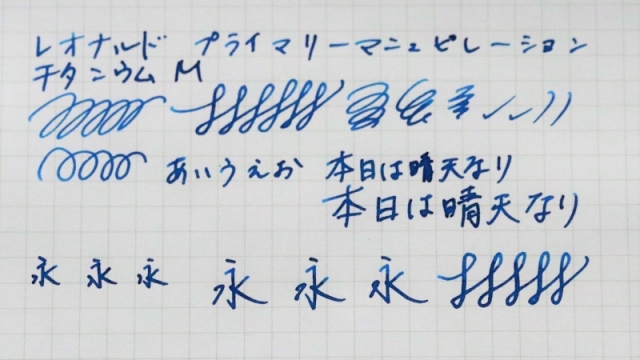 レオナルド プライマリーマニュピレーション
チタニウム M
あいうえお 本日は晴天なり
本日は晴天なり
永 永 永 永 永 永